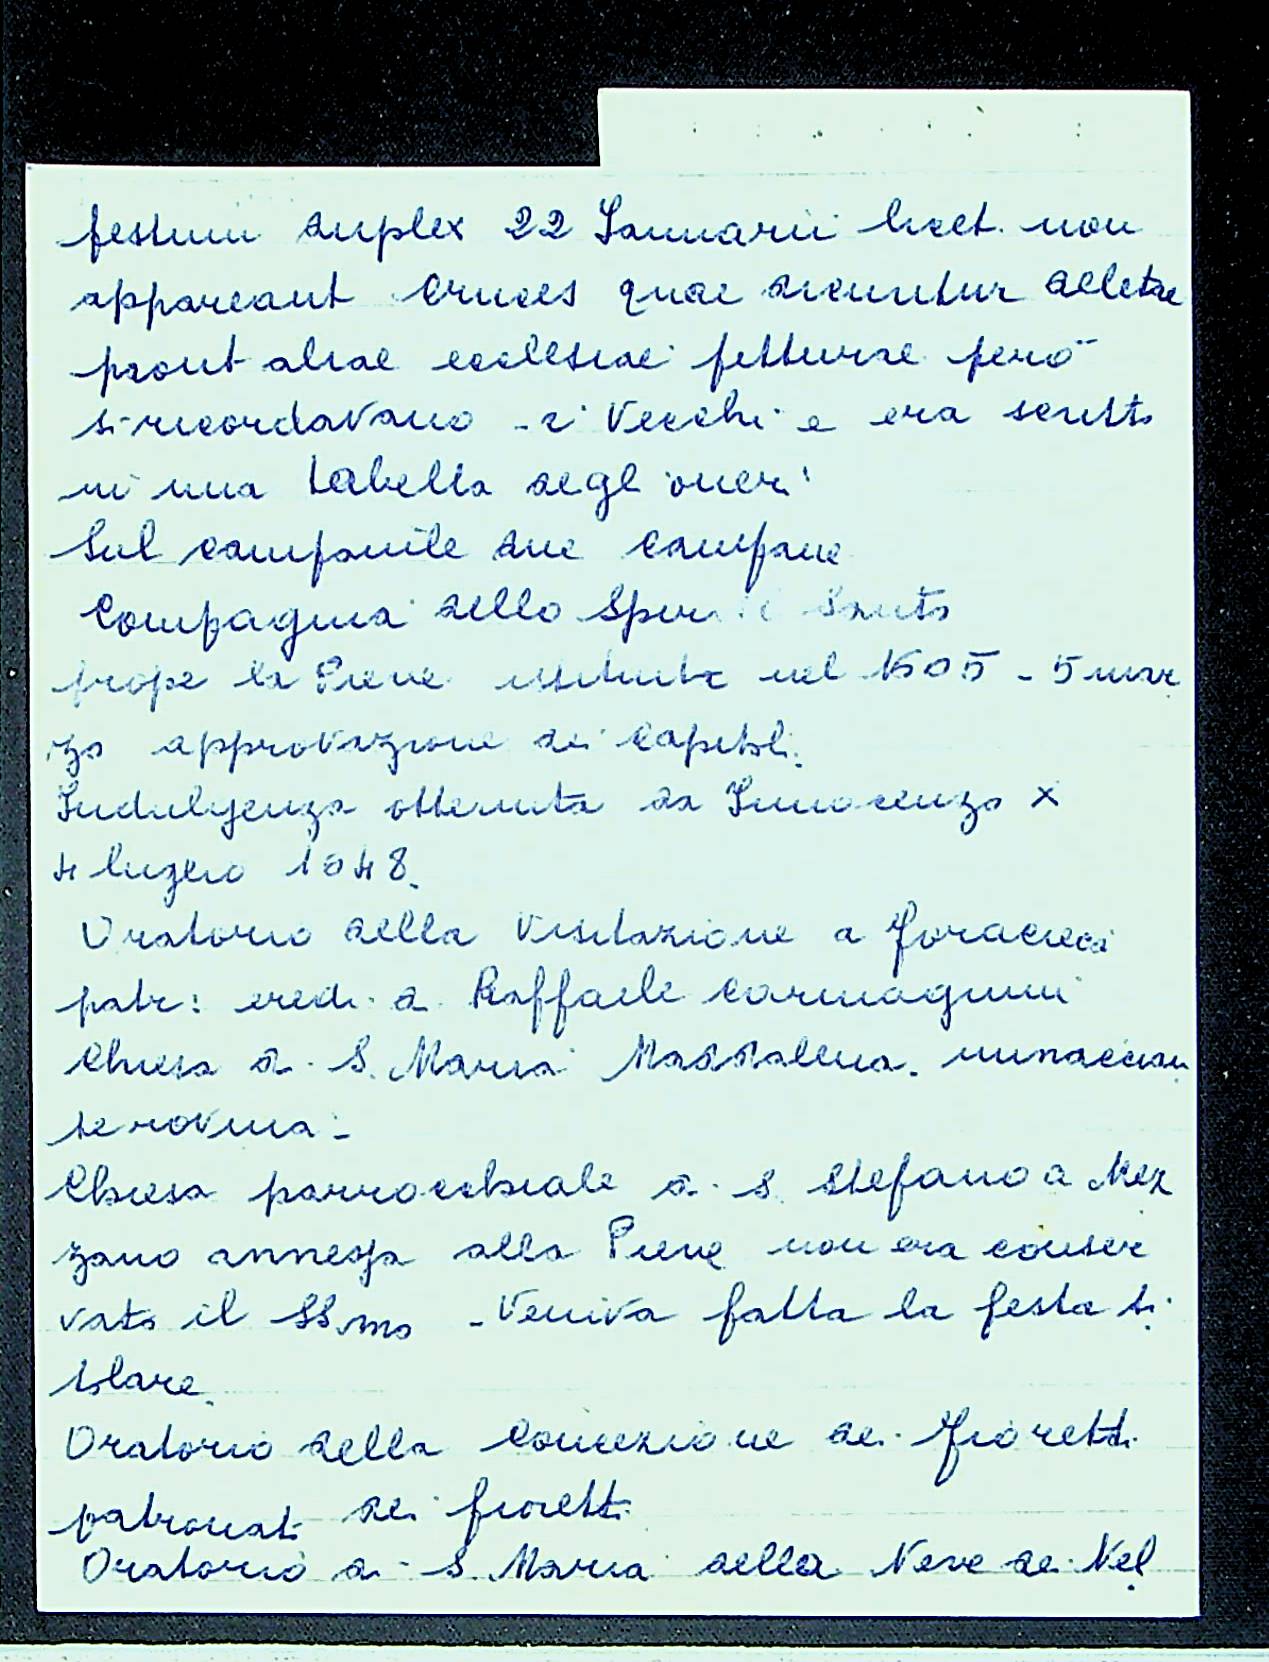 festum duplex 22 Januarii licet non
appareant cruces quae dicuntur
prout aliae ecclesiae però
si ricordavano i Vecchi e era scritto
in una tabella degl oneri
Sul campanile due campane
Compagnia dello Spir Santo
prope la Pieve istituita nel 1505 - 5 mar
zo approvazione dei Capitoli.
Indulgenza ottenuta da Innocenzo X
4 luglio 1648.
Oratorio della Visitazione a
patr: eredi di Raffaele Carmagnini
Chiesa di S. Maria Maddalena. minaccian
te rovina -
Chiesa parrocchiale di S. Stefano a Mez
zano annessa alla Pieve non era conser
vato il SSmo - Veniva fatta la festa ti
tolare.
Oratorio della Concezione dei Fioretti
patronat. dei fioretti
Oratorio di S. Maria della Neve de Nel